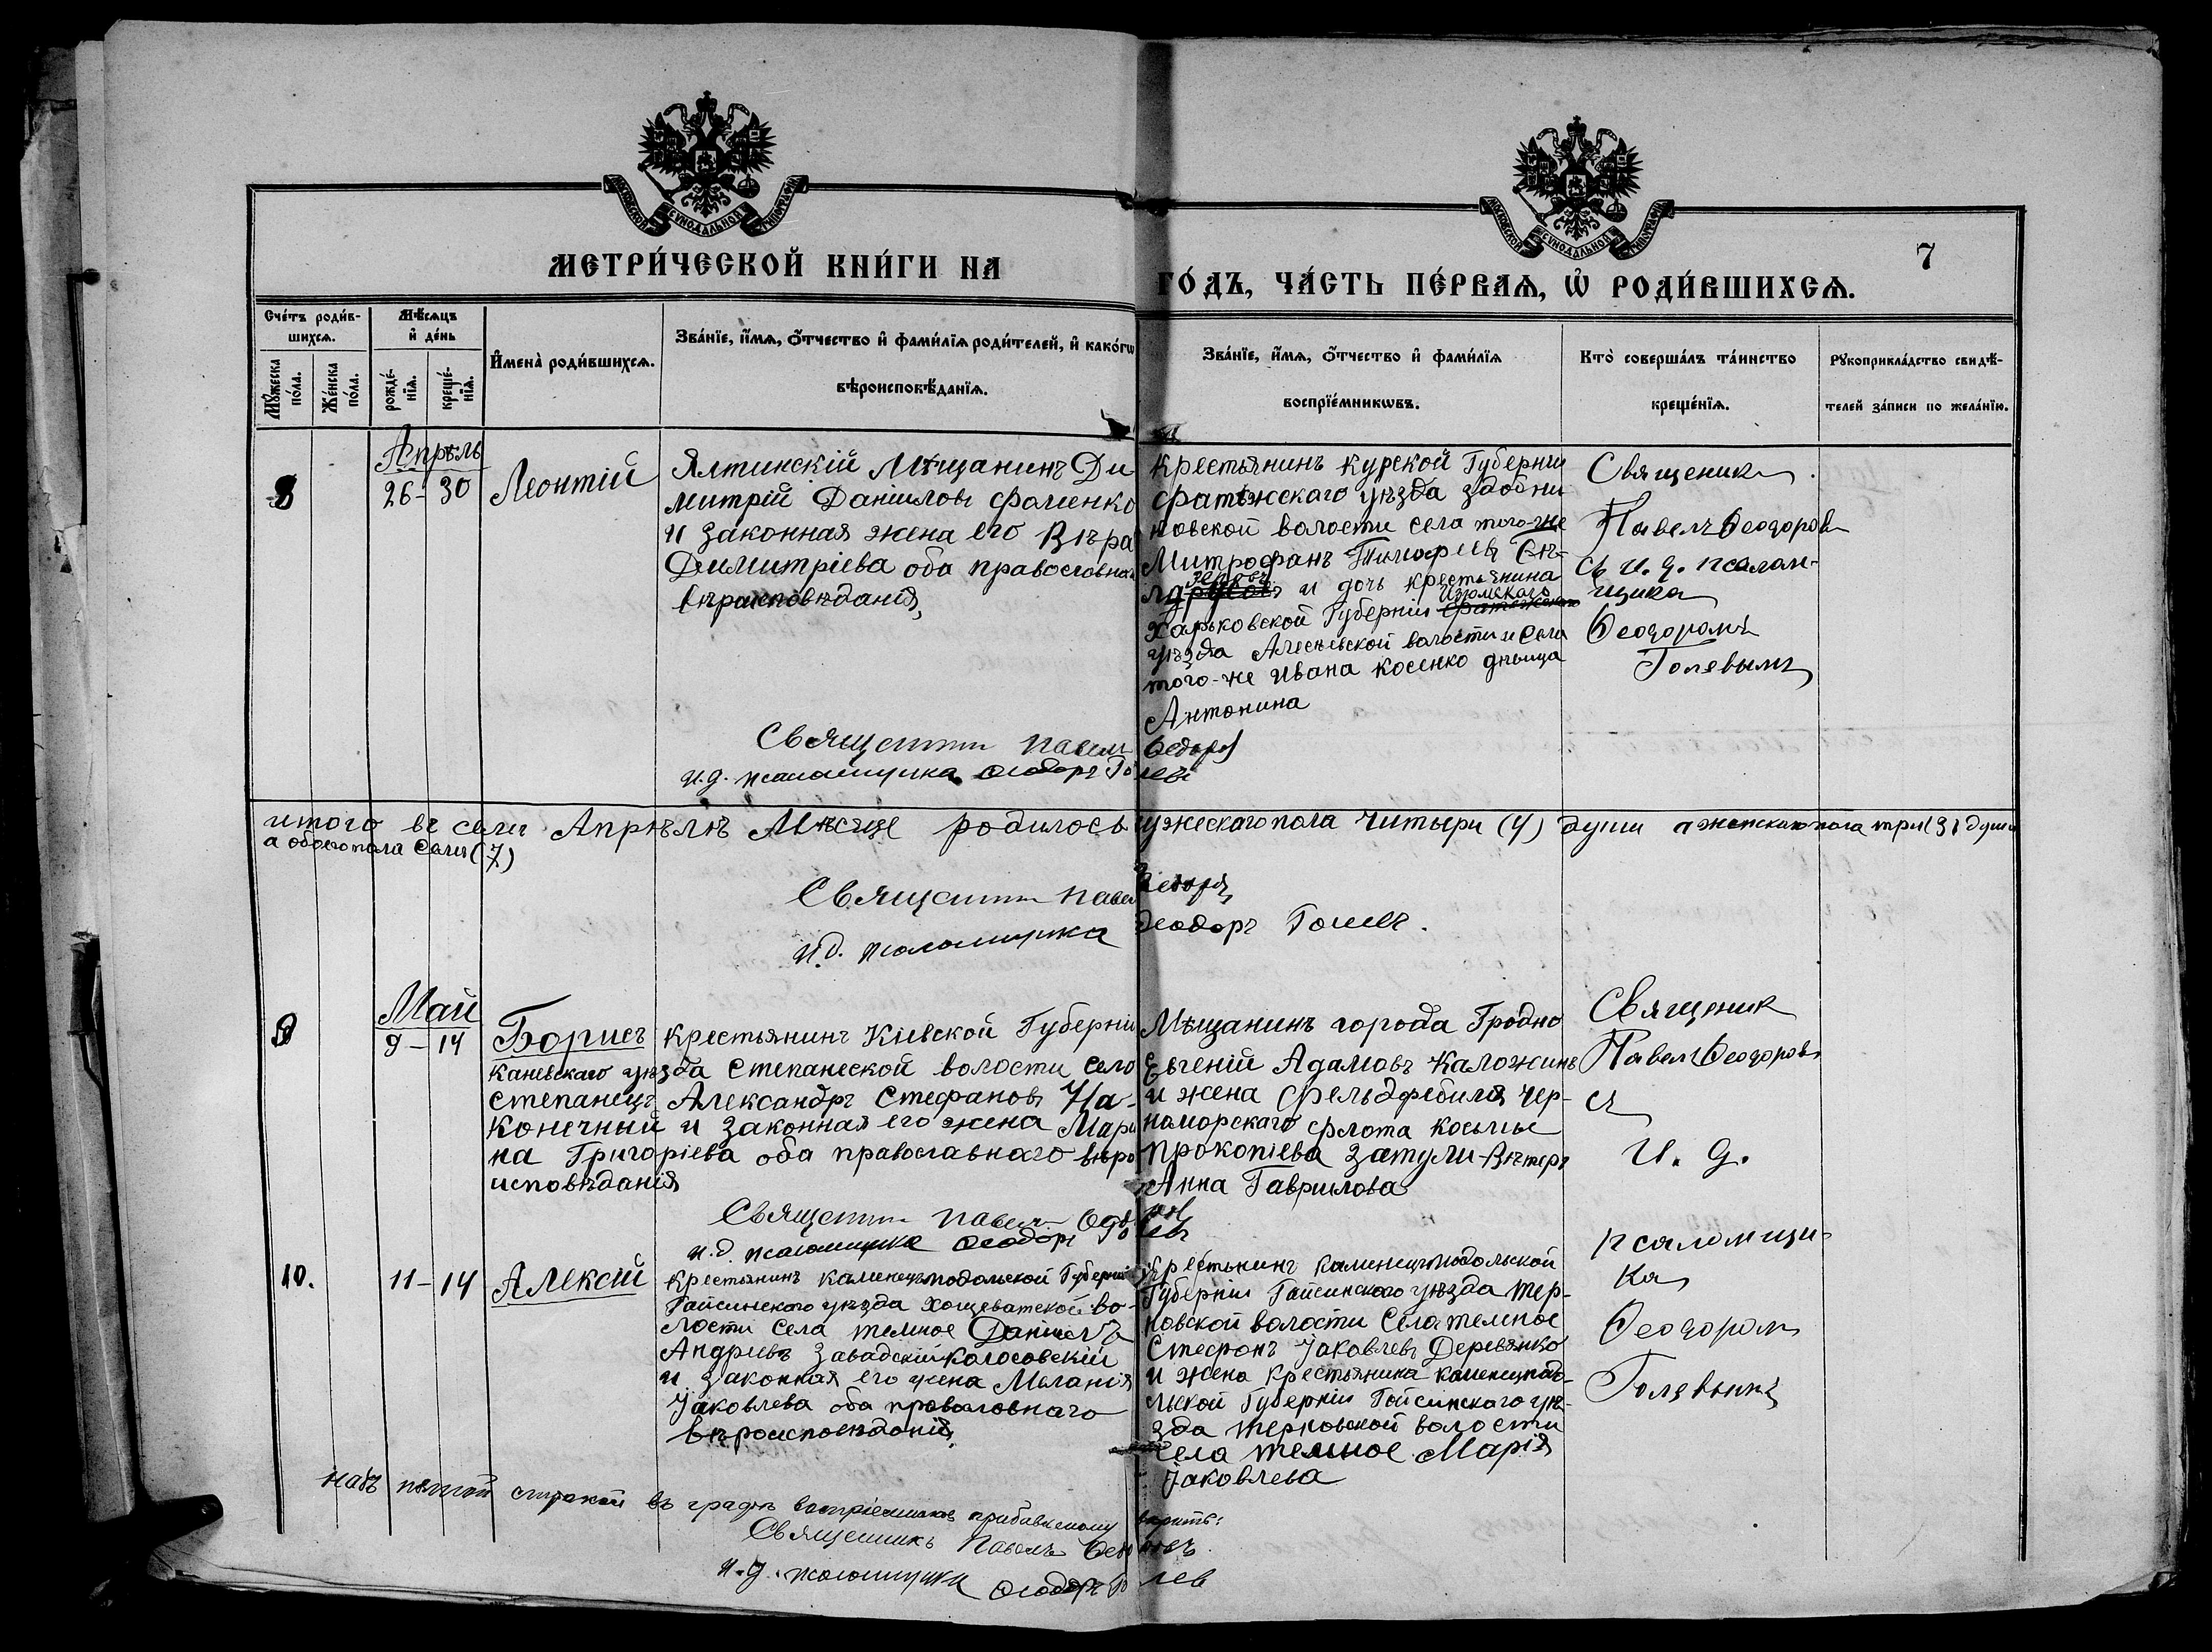 МОСКОВСКОЙ СѴНОДАЛЬНОЙ ТИПОГРАФІИ
МОСКОВСКОЙ СѴНОДАЛЬНОЙ ТИПОГРАФІИ
7
МЕТРИ́ЧЕСКОЙ КНИ́ГИ НА
ГО́ДЪ, ЧА́СТЬ ПЕ́РВАѦ, Ѡ҆ РОДИ́ВШИХСѦ.
Сче́тъ роди́в-
шихсѧ.
Мꙋ́жеска по́ла.
Же́нска по́ла.
Мѣ́сѧцъ
и҆ де́нь
рожде́-
нїѧ.
креще́-
нїѧ.
И҆мена̀ роди́вшихсѧ.
Зва́нїе, и҆́мѧ, ѻ҆́тчество и҆ фами́лїѧ роди́телей, и҆ како́гѡ
вѣроисповѣ́данїѧ.
Зва́нїе, и҆́мѧ, ѻ҆́тчество и҆ фами́лїѧ
воспрїе́мникѡвъ.
Кто̀ соверша́лъ та́инство
креще́нїѧ.
Рꙋкоприкла́дство свидѣ́-
телей за́писи по жела́нїю.
8
Апрѣль
26-30
Леонтій
Ялтинскій Мѣщанинъ Ди
митрій Даніиловъ Фоменко
и законная жена его Вѣра
Димитріева оба православнаго
вѣроисповѣданія
Крестьянинъ Курской Губерніи
Фатежскаго уѣзда
новской волости села того-же
Митрофанъ
и дочь крестьянина
Изюмскаго
Харьковской Губерніи
уѣзда волости и Села
того-же Ивана Косенко дѣвица
Антонина
Священикъ
Павелъ Ѳеодоров
съ и. д. псалам-
щика
Ѳеодоромъ
Голевымъ
Священникъ Павелъ Ѳедоров
и.д. псаломщика Ѳеодоръ Голевъ
итого въ семъ Апрѣлѣ Мѣсяце родилось мужескаго пола читыри (4) души а женскаго пола три (3) души
а обоего пола Семь (7)
Священникъ Павелъ Ѳедоровъ
и.д. псаломщика Ѳеодоръ Голевъ.
9
Май
9-14
Борисъ
Крестьянинъ Кіевской Губерніи
Каневскаго уѣзда Степанеской волости село
Степанецъ Александръ Стефановъ На-
конечный и законная его жена Мари
на Григоріева оба православнаго вѣро
исповѣданія
Мѣщанинъ города Гродно
Евгеній Адамовъ Каложинъ
и жена Фельдфебиля Чер-
номорскаго флота Косьмы
Прокопіева Затули-Вѣтеръ
Анна Гаврилова
Священик
Павелъ Ѳеодоровъ
съ
И. д.
псаломщи-
ка
Ѳеодором
Голевымъ
Священникъ Павелъ Ѳедоров
и.д. псаломщика Ѳеодоръ Голевъ
10.
11-14
Алексій
Крестьянинъ Каменецъподольской Губерніи
Гайсинскаго уѣзда Хощеватской во-
лости Села темное Даніилъ
Андріевъ Завадскій Колосовскій
и законная его жена Меланія
Іаковлева оба православнаго
вѣроисповѣданія
Крестьнинъ Каменецъподольской
Губерніи Гайсинскаго уѣзда Тер-
новской волости Села темное
Стефанъ Іаковлевъ Деревянко
и жена крестьянина каменецпадо-
льской Губерніи Гайсинскаго уѣ-
зда терновской волости
села темное Марія
Іаковлева
Надъ пятой строкой въ графѣ воспріемниковъ прибавленому вѣрить:
Священникъ Павелъ Ѳедоровъ.
и.д. псаломщика Ѳеодоръ Голев